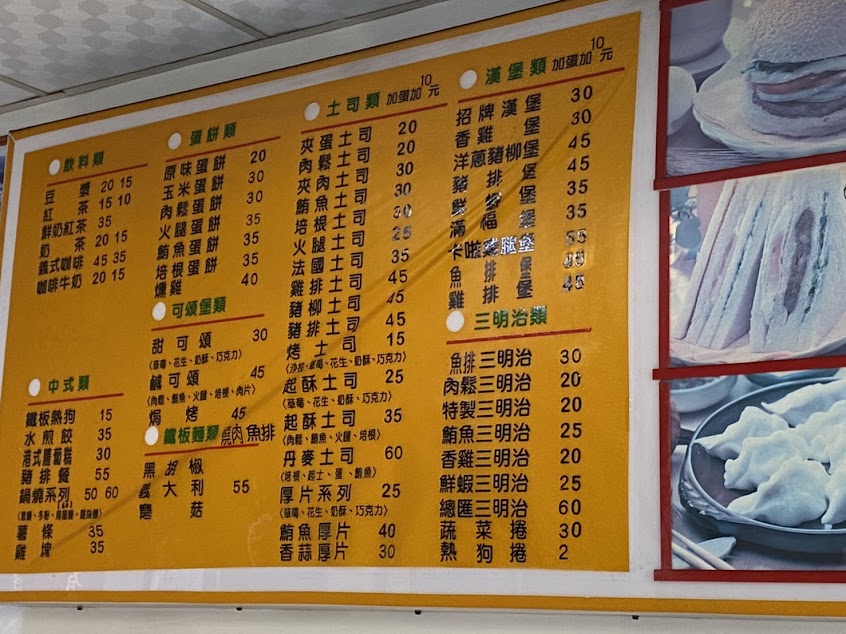 飲料類
豆漿 20 15
紅茶 15 10
鮮奶紅茶 35
奶茶 20 15
義式咖啡 45 35
咖啡牛奶 20 15
中式類
鐵板熱狗 15
水煎餃 35
港式蘿蔔糕 30
豬排餐 55
鍋燒系列 50 60
薯條 35
雞塊 35
蛋餅類
原味蛋餅 20
玉米蛋餅 30
肉鬆蛋餅 30
火腿蛋餅 35
鮪魚蛋餅 35
培根蛋餅 35
燻雞 40
可頌堡類
甜可頌 30
(草莓、花生、奶酥、巧克力)
鹹可頌 45
(肉鬆、鮪魚、火腿、培根、肉片)
焗烤 45
鐵板麵類 燒肉 魚排
黑胡椒
義大利 55
蘑菇
土司類 加蛋加10元
夾蛋土司 20
肉鬆土司 20
夾肉土司 30
鮪魚土司 30
培根土司 30
火腿土司 25
法國土司 35
雞排土司 45
豬柳土司 45
豬排土司 45
烤土司 15
起酥土司 25
(草莓、花生、奶酥、巧克力)
起酥土司 35
(肉鬆、鮪魚、火腿、培根)
丹麥土司 60
(培根、起士、蛋、鮪魚)
厚片系列 25
(草莓、花生、奶酥、巧克力)
鮪魚厚片 40
香蒜厚片 30
漢堡類 加蛋加10元
招牌漢堡 30
香雞堡 30
洋蔥豬柳堡 45
豬排堡 45
鮮蝦堡 35
滿福堡 35
卡啦雞腿堡 55
魚排堡 45
雞排堡 45
三明治類
魚排三明治 30
肉鬆三明治 20
特製三明治 20
鮪魚三明治 25
香雞三明治 20
鮮蝦三明治 25
總匯三明治 60
蔬菜捲 30
熱狗捲 2